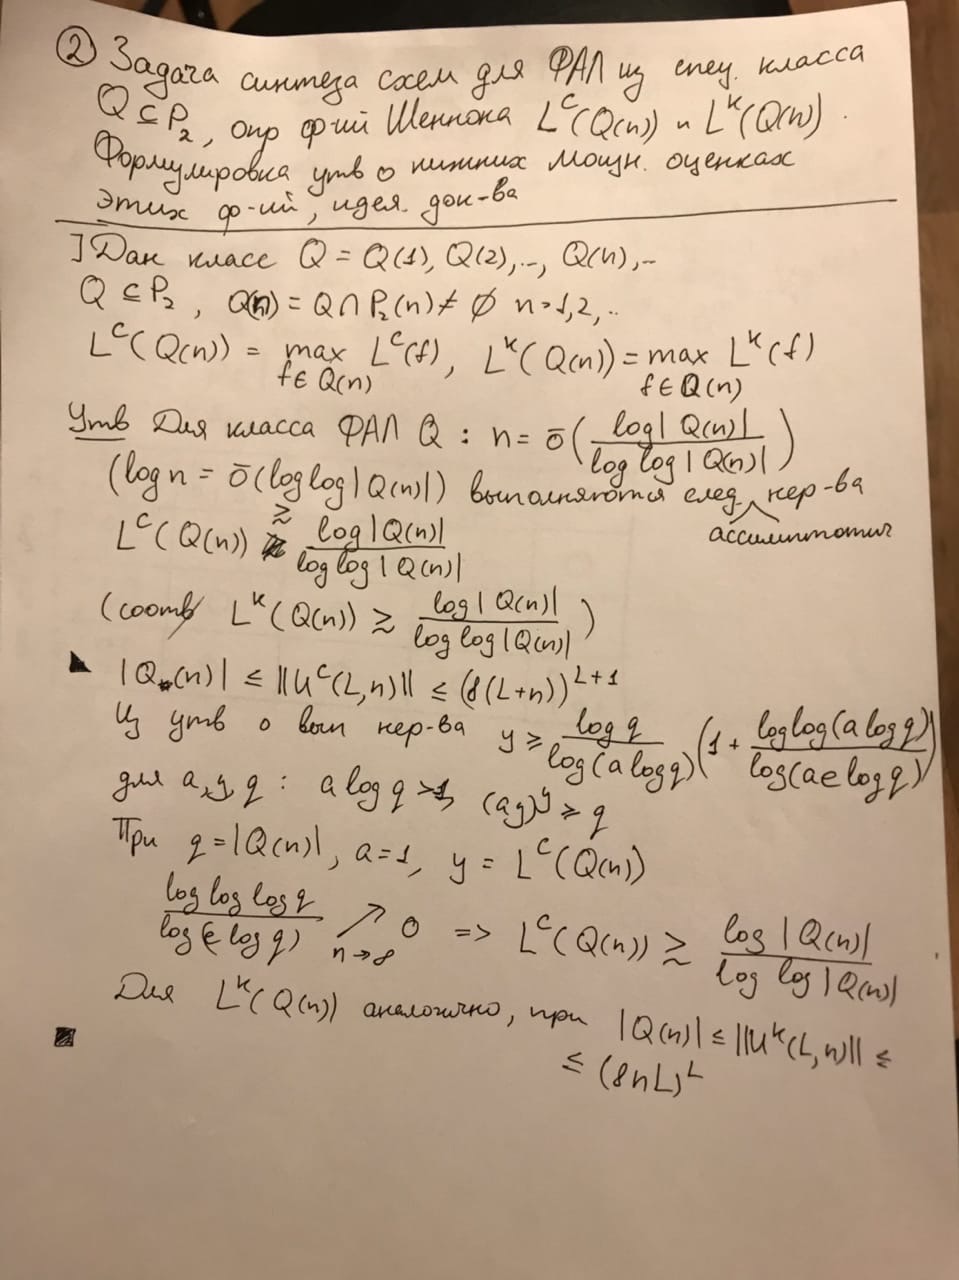 ② Задача синтеза схем для ФАЛ из спец. класса
Q ⊆ P₂, опр ф-ий Шеннона L^C(Q(n)) и L^K(Q(n)).
Формулировка утв о нижних мощн. оценках
этих ф-ий, идея док-ва
] Дан класс Q = Q(1), Q(2),.., Q(n),..
Q ⊆ P₂, Q(n) = Q ∩ P₂(n) ≠ ∅ n = 1,2,..
L^C(Q(n)) = max_{f∈Q(n)} L^C(f), L^K(Q(n)) = max_{f∈Q(n)} L^K(f)
Утв Для класса ФАЛ Q : n = ō(log|Q(n)| / log log|Q(n)|)
(log n = ō(log log|Q(n)|) выполняются след. нер-ва
ассимптотич
L^C(Q(n)) ≳ log|Q(n)| / log log|Q(n)|
(соотв L^K(Q(n)) ≳ log|Q(n)| / log log|Q(n)|)
|Q(n)| ≤ ||U^C(L,n)|| ≤ (8(L+n))^{L+1}
Из утв о вып нер-ва y ≥ log q / log(a log q) (1 + log log(a log q) / log(ae log q))
для a, y, q : a log q > 1, (ay)^y ≥ q
При q = |Q(n)|, a = 1, y = L^C(Q(n))
log log log q / log(e log q) ↗_{n→∞} 0 => L^C(Q(n)) ≳ log|Q(n)| / log log|Q(n)|
Для L^K(Q(n)) аналогично, при |Q(n)| ≤ ||U^K(L,n)|| ≤
≤ (8nL)^L